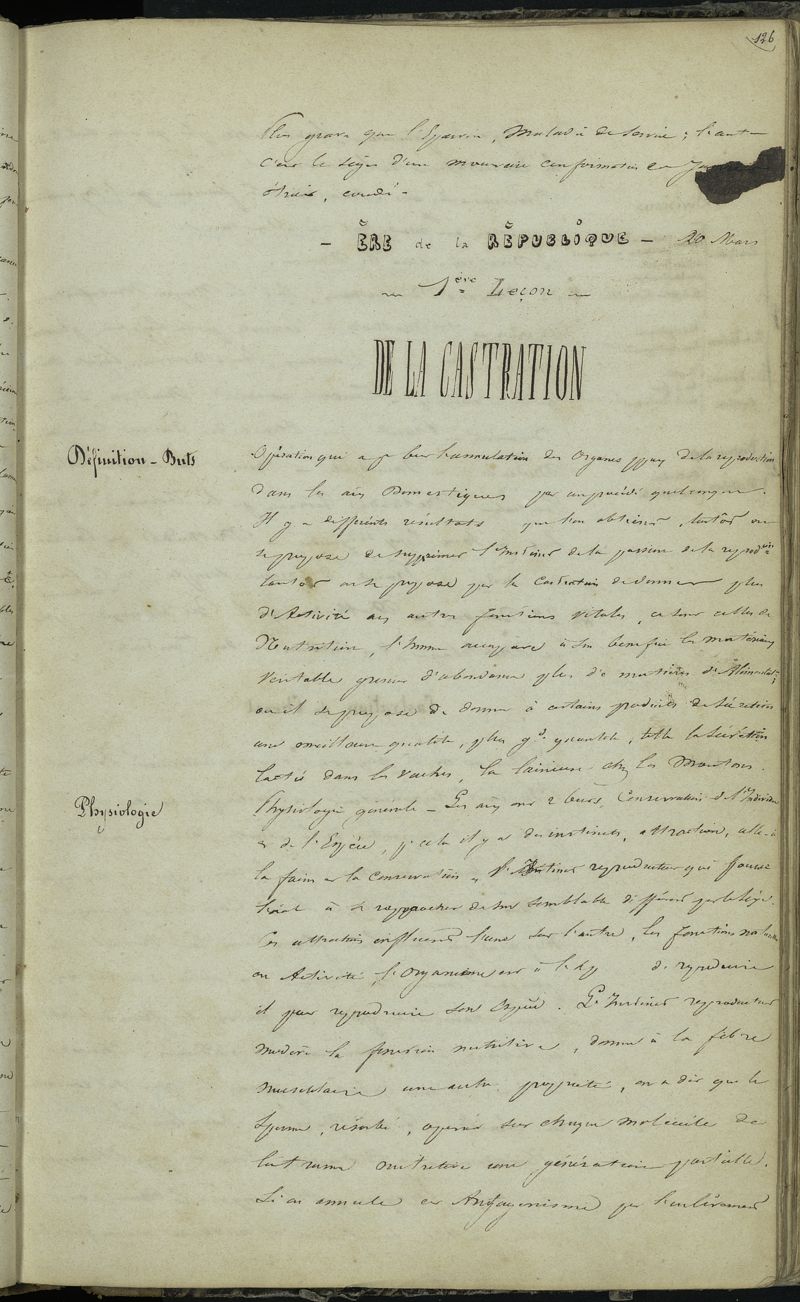 126
Plus grave que l'Eparvin, Maladie de ; l'autre
c'est le signe d'une mauvaise conformation
étroit, coudé -
- ÈRE de la RÉPUBLIQUE - 20 Mars
1ère Leçon
DE LA CASTRATION
Définition - Buts
Opération qui a pr but l'annulation des Organes de la reproduction
dans les aux Domestiques par un procédé quelconque.
Il y a différents résultats que l'on obtient, tantôt on
se propose de supprimer l'Instinct de la passion de la reprodon
tantôt on se propose par la Castration de donner plus
d'Activité aux autres fonctions vitales, ce sont celles de
Nutrition, l'homme à son bénéfice les matériaux
d'abondance plus de matières d'Alimentation
ou il se propose de donner à certains produits de sécrétion
une meilleure qualité, plus gde quantité, telle la Sécrétion
lactée dans les vaches, la laineuse chez les Moutons.
Physiologie
Physiologie générale - Les aux ont 2 buts, Conservation de l'Individu
et de l'Espèce, pr cela il y a des instincts, attraction, celle-ci
la faim et la conservation l'Instinct reproducteur qui pousse
à se rapprocher de son semblable différent par le sexe.
Ces attractions influent l'une sur l'autre, les fonctions
en Activité, l'organisme est à de reproduire
il peut reproduire son Espèce. L'Instinct reproducteur
modère la fonction nutritive, donne à la fibre
musculaire une autre propriété, on a dit que le
Sperme, résorbé, opérait sur chaque molécule de
la trame une génération partielle.
Si on annule cet Antagonisme par l'enlèvement